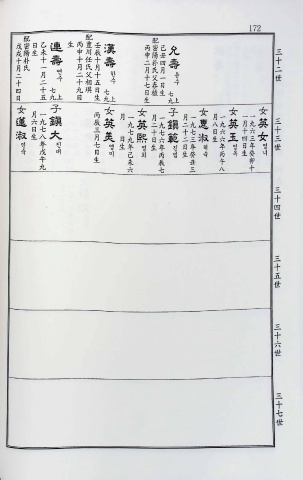 172
三十二世
允壽 윤수
七九上
己丑四月一日生
配密陽朴氏父春植
丙申二月十七日生
漢壽 한수
七九上
壬辰十月十五日生
配豊川任氏父相琪
丙申十月二十九日生
連壽 연수
七九上
己未十一月二十五日生
配密陽朴氏
戊戌十月二十四日
三十三世
女英女 영녀
一九六三年癸卯十一月十四日生
女英玉 영옥
一九六六年丙午八月八日生
女惠淑 혜숙
一九七三年癸丑三月二十二日生
子鎭範 진범
一九七六年丙辰七月二十日生
女英熙 영희
一九七九年己未六月二十七日生
女英美 영미
丙辰三月七日生
子鎭大 진대
一九七八年戊午九月六日生
女蓮淑
三十四世
三十五世
三十六世
三十七世